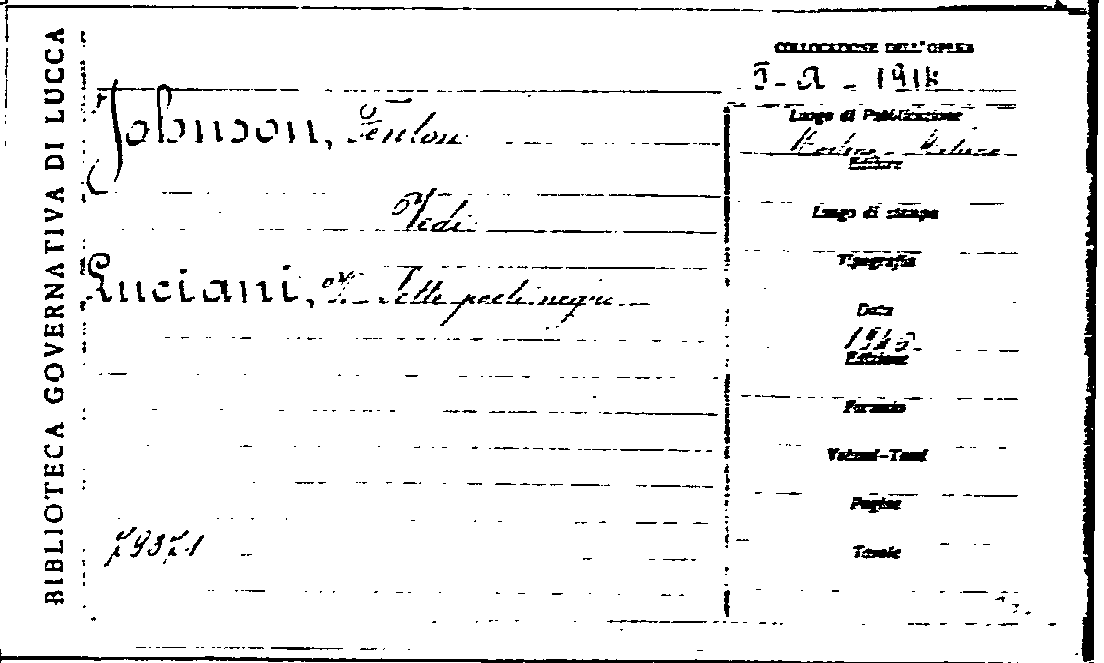 BIBLIOTECA GOVERNATIVA DI LUCCA
COLLOCAZIONE DELL'OPERA
Johnson, Fenton
Luogo di Pubblicazione
Editore
Vedi
Luogo di stampa
Tipografia
Luciani, Sette poeti negri
Data
Edizione
Formato
Volumi-Tomi
Pagine
Tavole